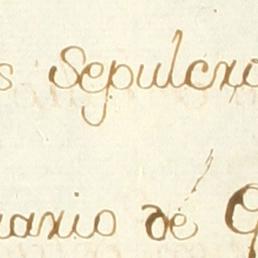 s sepulcro
uario de G